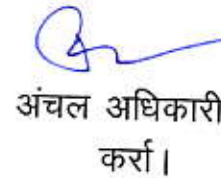 अंचल अधिकारी
कर्रा।